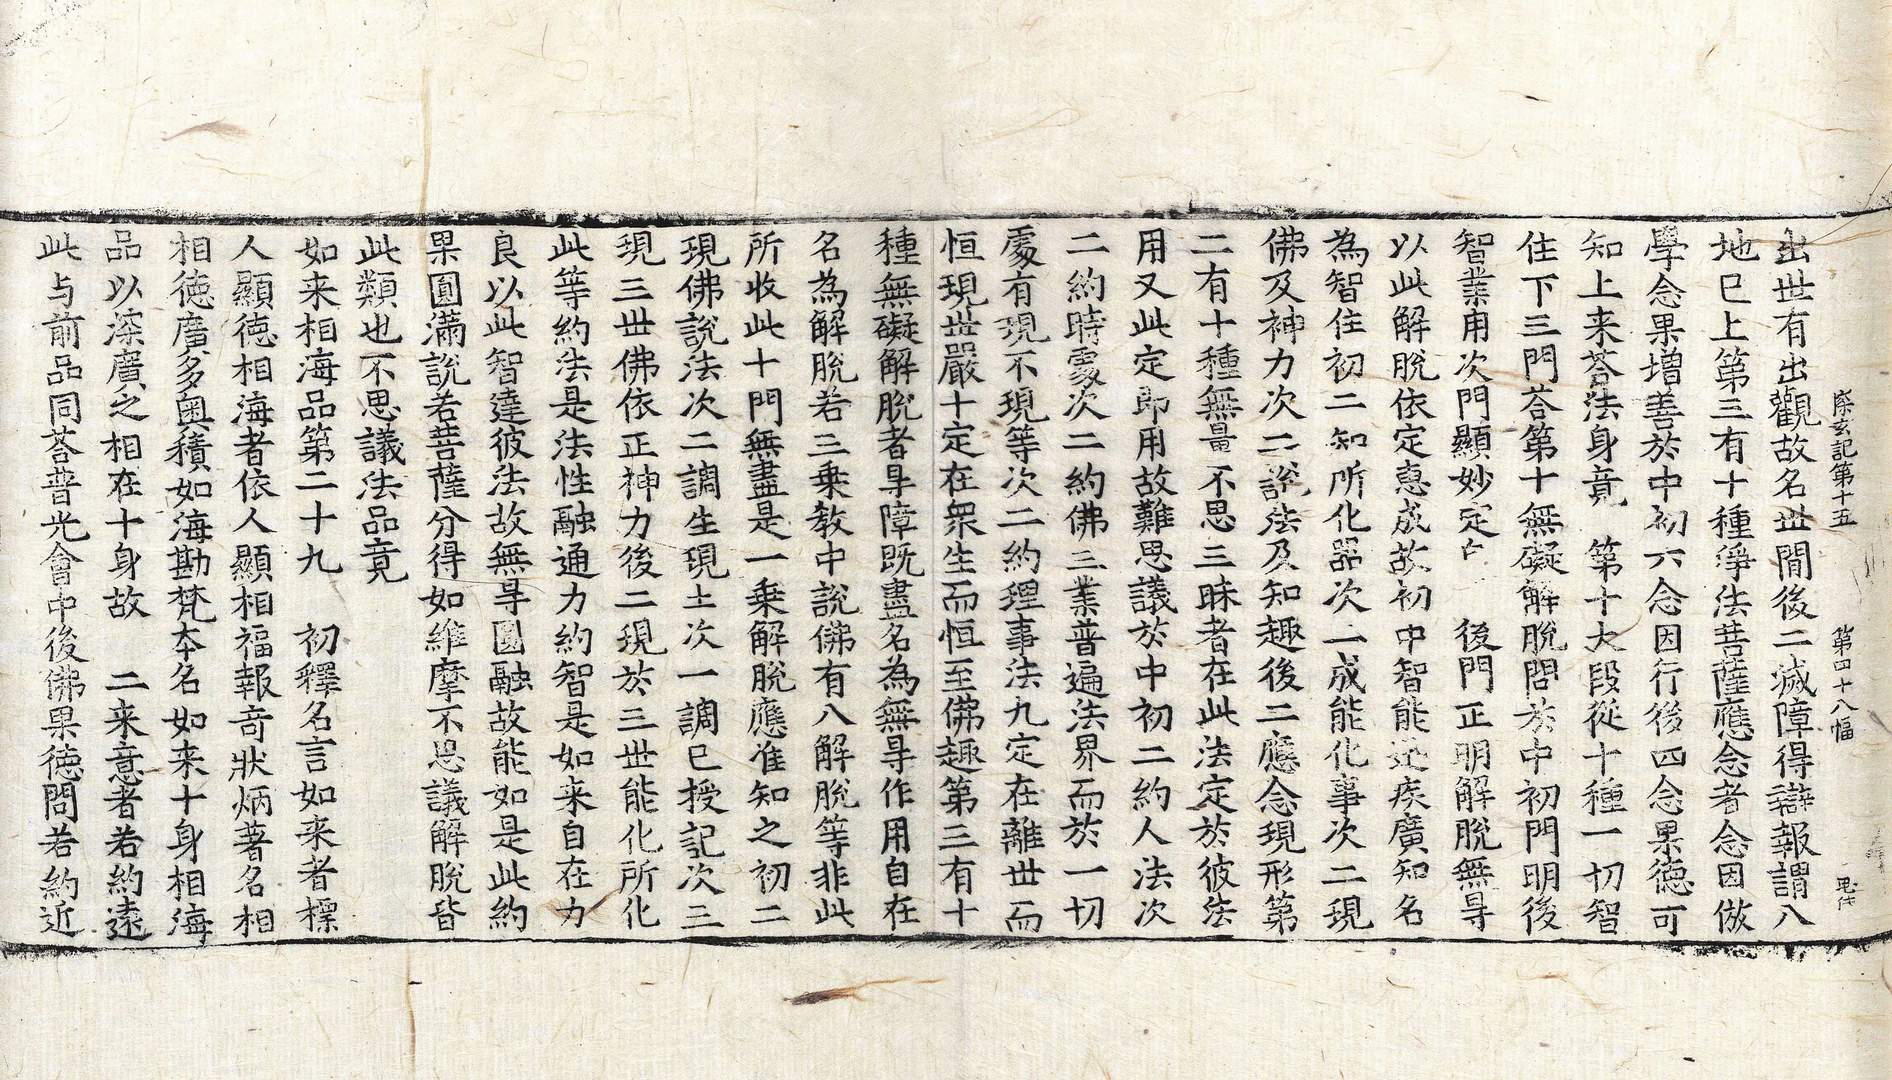 探玄記第十五 第四十八幅
出世有出觀故名世間後二滅障得辯報謂八
地已上第三有十種淨法菩薩應念者念因倣
學念果增善於中初六念因行後四念果德可
知上来荅法身竟 第十大段從十種一切智
住下三門荅第十無礙解脫問於中初門明後
智業用次門顯妙定 後門正明解脫無㝵
以此解脫依定惠成故初中智能 疾廣知名
為智住初二知所化器次二成能化事次二現
佛及神力次二說法及知趣後二應念現形第
二有十種無量不思三昧者在此法定於彼法
用又此定即用故難思議於中初二約人法次
二約時處次二約佛三業普遍法界而於一切
處有現不現等次二約理事法九定在離世而
恒現世嚴十定在衆生而恒至佛趣第三有十
種無礙解脫者㝵障既盡名為無㝵作用自在
名為解脫若三乗教中說佛有八解脫等非此
所收此十門無盡是一乗解脫應准知之初二
現佛說法次二調生現土次一調已授記次三
現三世佛依正神力後二現於三世能化所化
此等約法是法性融通力約智是如来自在力
良以此智達彼法故無㝵圓融故能如是此約
果圓滿說若菩薩分得如維摩不思議解脫皆
此類也不思議法品竟
如来相海品第二十九 初釋名言如来者標
人顯德相海者依人顯相福報奇狀炳著名相
相德廣多奥積如海勘梵本名如来十身相海
品以深廣之相在十身故 二来意者若約遠
此与前品同荅普光會中後佛果德問若約近